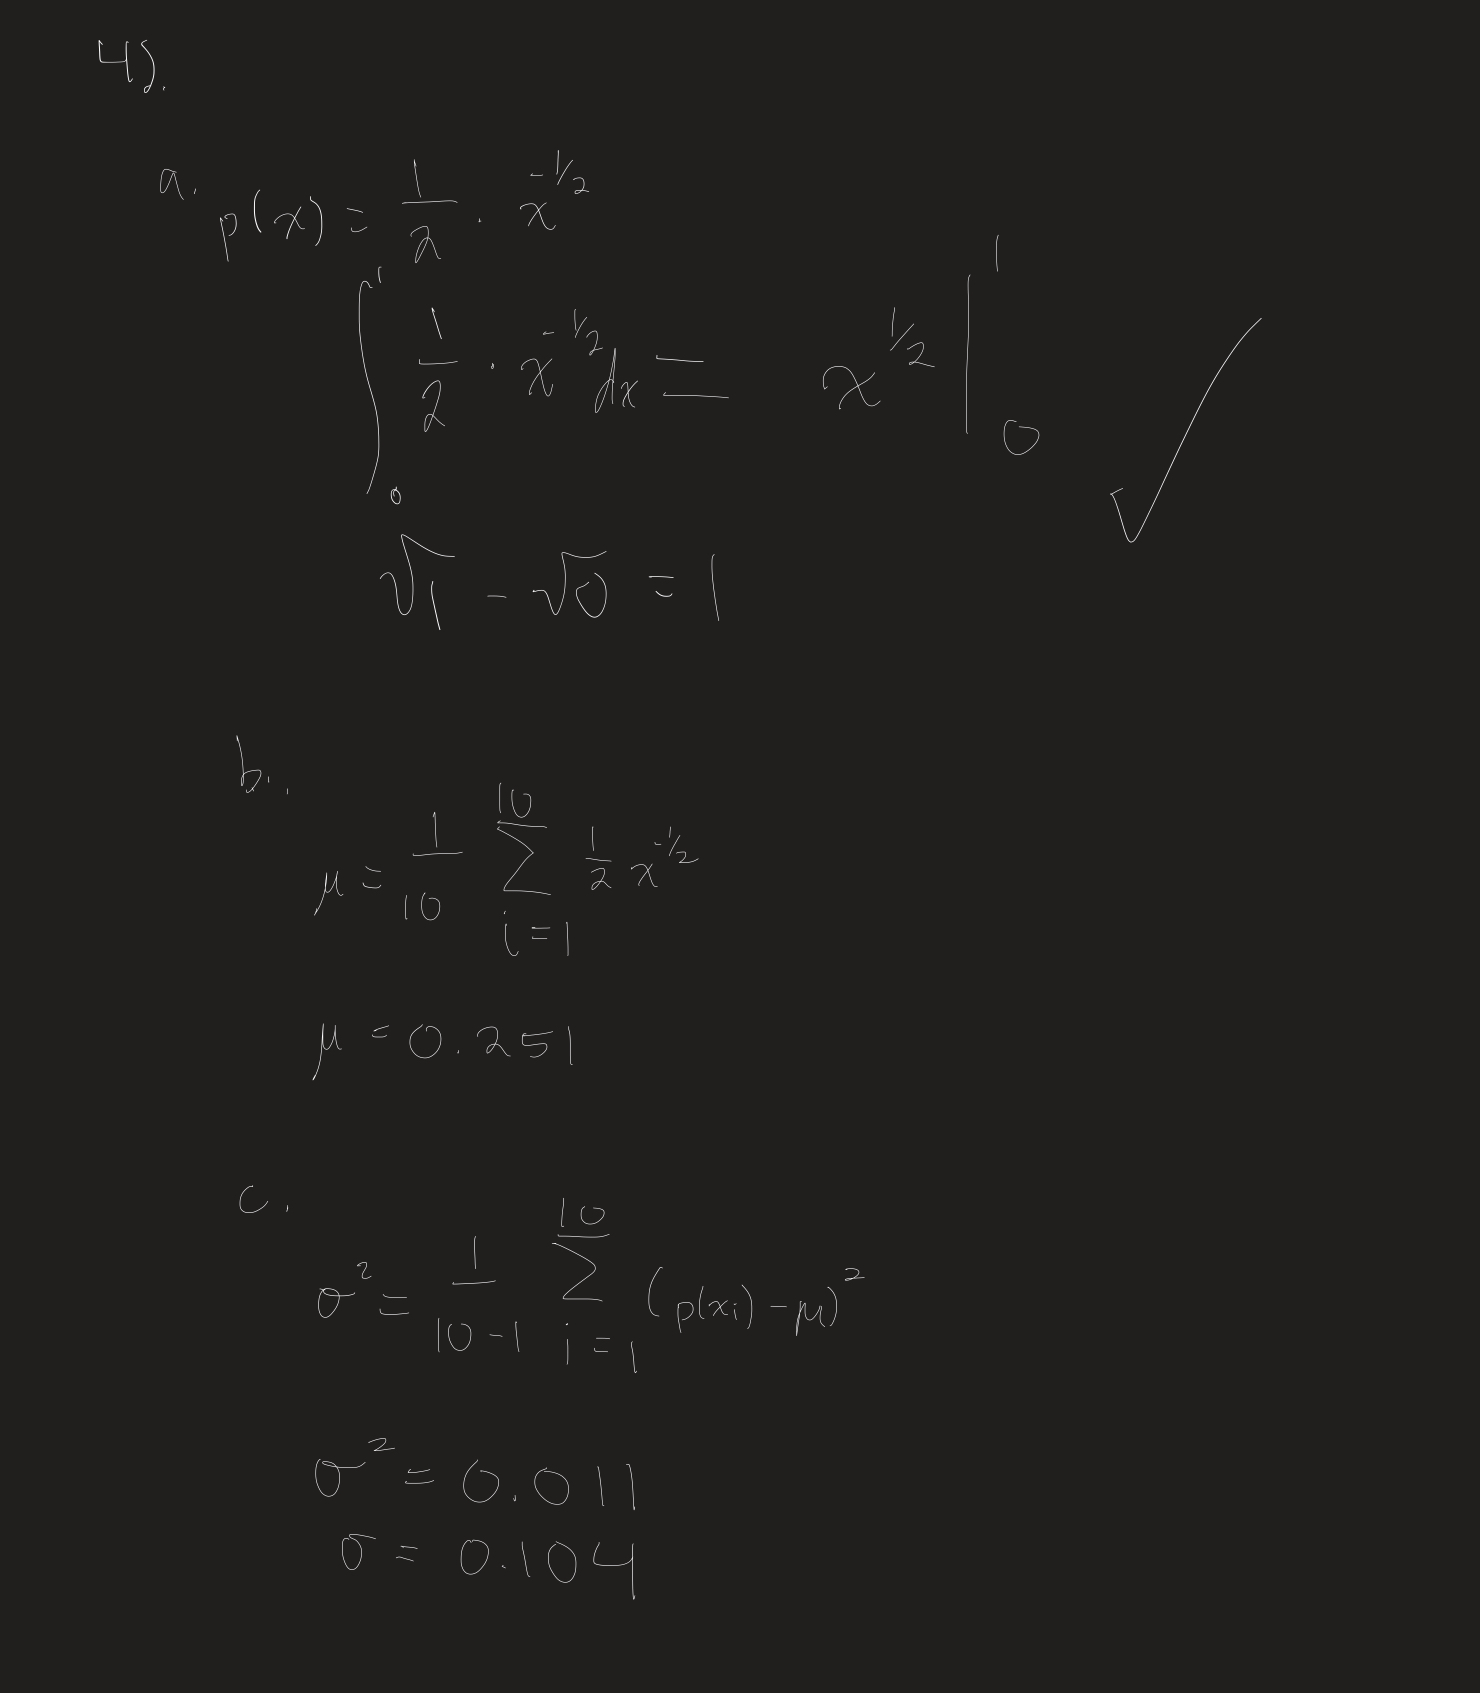 4).
a. p(x) = 1/2 · x^{-1/2}
∫_0^1 1/2 · x^{-1/2} dx = x^{1/2} |_0^1 ✓
√1 - √0 = 1
b.
μ = 1/10 ∑_{i=1}^{10} 1/2 x^{-1/2}
μ = 0.251
c.
σ² = 1/(10-1) ∑_{i=1}^{10} (p(xi) - μ)²
σ² = 0.011
σ = 0.104